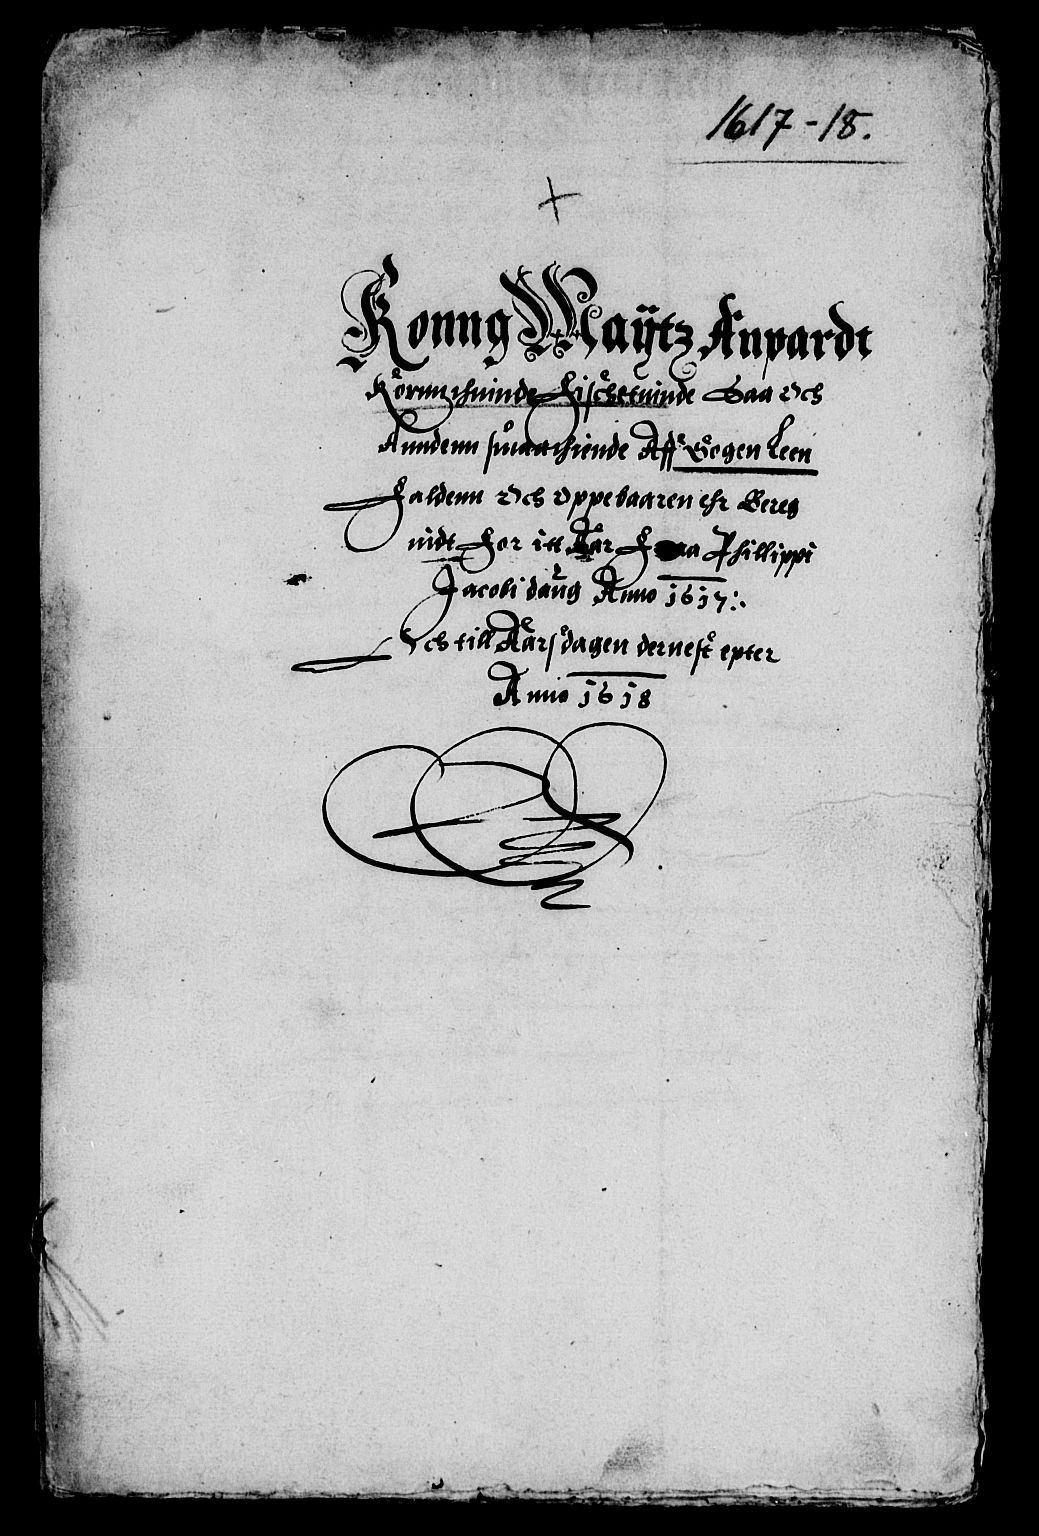 1617-18.
+
Konng Maÿtz Anpardt
Kornnthiinde Fischetiinde Saa och
Anndenn smaathiende Aff Gogen Leen
Faldenn och oppebaaren ehr Bereg
nidt For itt Aar Fraa Phillippi
Jacobi daug Anno 1617:.
Och till Aarsdagen dernest epter
Anno 1618